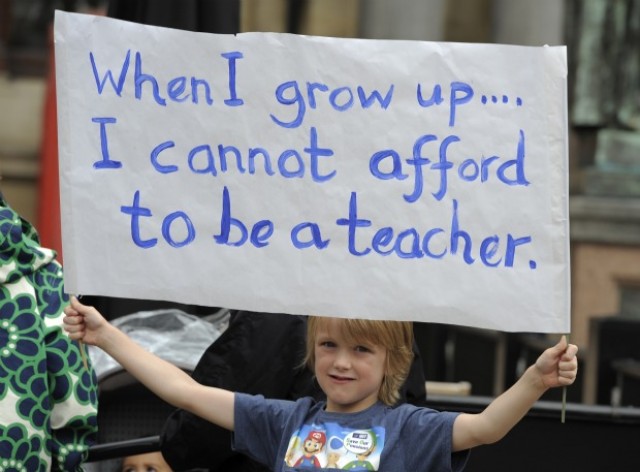 When I grow up....
I cannot afford
to be a teacher.